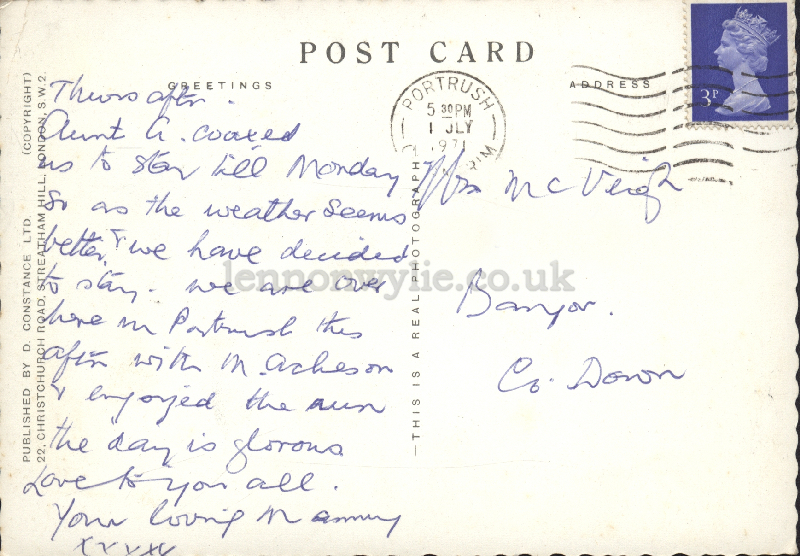 POST CARD
GREETINGS
ADDRESS
PUBLISHED BY D. CONSTANCE LTD. (COPYRIGHT)
22, CHRISTCHURCH ROAD, STREATHAM HILL, LONDON, S.W.2.
Thurs aftn.
Aunt A. coaxed
us to stay till Monday
so as the weather seems
better, & we have decided
to stay. We are over
here in Portrush this
aftn with M. Acheson
& enjoyed the run
the day is glorous
Love to you all.
Your loving Mammy
xxxxx
—THIS IS A REAL PHOTOGRAPH
PORTRUSH
5 30PM
1 JLY
1971
RIM
3P
Mrs McVeigh
Bangor.
Co. Down
lennonwylie.co.uk